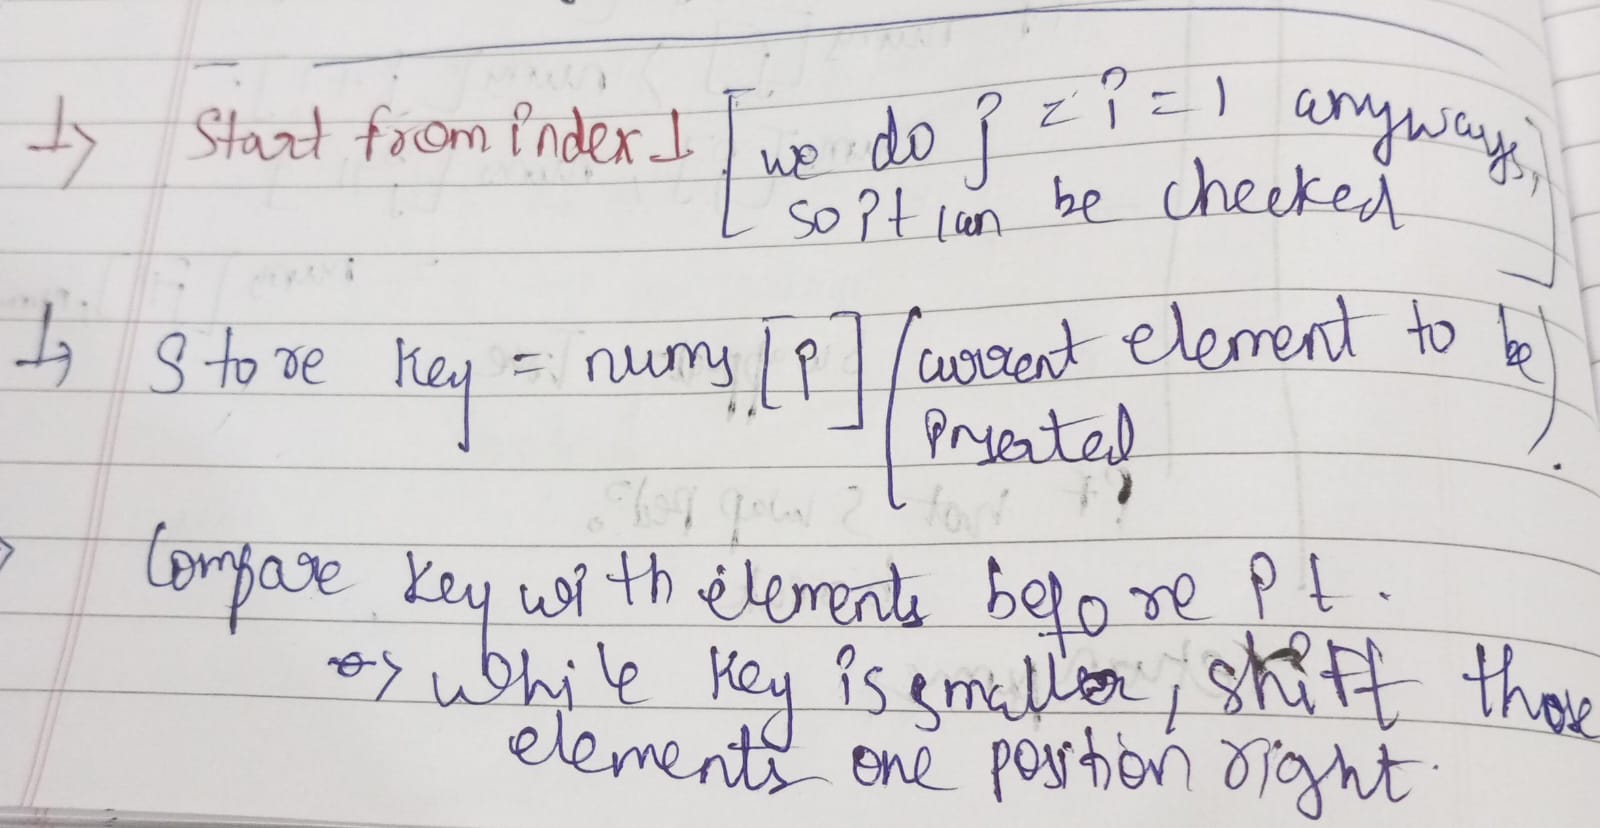 → Start from index 1 [we do j = i = 1 anyways,
so it can be checked]
→ Store key = nums [i] (current element to be
inserted).
Compare key with elements before it.
⇒ while key is smaller, shift those
elements one position right.